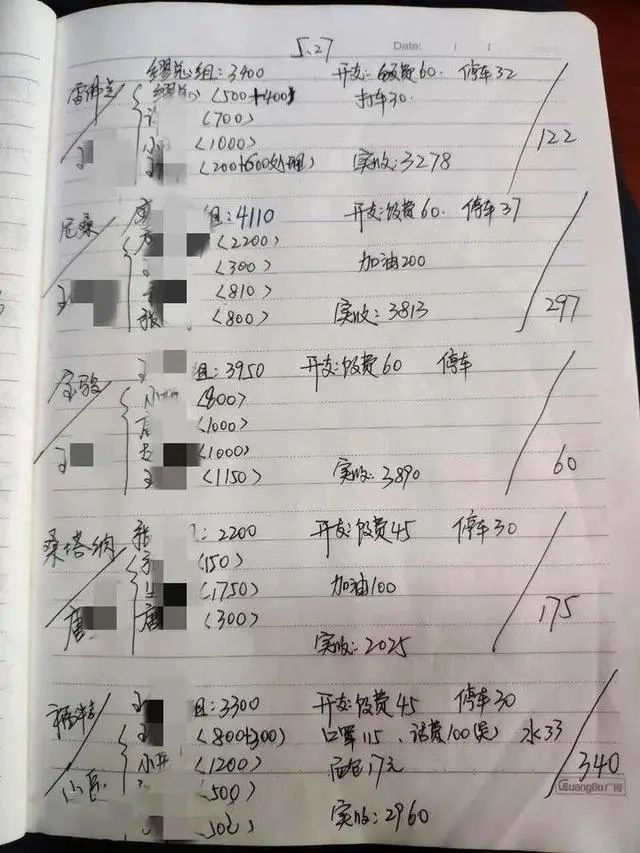 5.27 Date: / /
雷佛兰 组:3400 开支:饭费60 停车32
(500+400) 打车30
(700)
小 (1000) 122
王 (200+600处理) 实收:3278
尼桑 唐 组:4110 开支:饭费60 停车37
(2200)
(300) 加油200
王 (810)
张 (800) 实收:3813 297
宝骏 王 组:3950 开支:饭费60 停车
小 (800)
(1000)
王 (1000)
王 (1150) 实收:3890 60
桑塔纳 张 :2200 开支:饭费45 停车30
(150)
(1750) 加油100
唐 唐 (300) 175
实收:2025
王 组:3300 开支:饭费45 停车30
(800+300) 口罩115、话费100 水33
小 (1200) 17元 340
(500) GuangBo广博
实收:2960